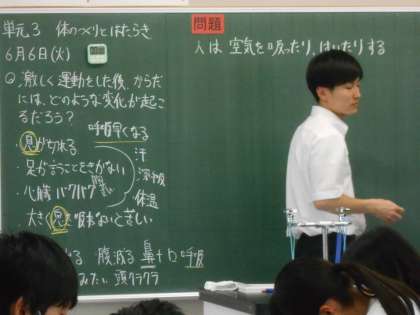 単元3 体のつくりとはたらき
6月6日(火)
問題
人は 空気を吸ったり、はいたりする
◎激しく運動をした後、からだ
には、どのような変化が起こ
るだろう？
呼吸早くなる
息が切れる
汗
足が言うことをきかない
心臓 バクバク
体温
大きく息を吸わないと苦しい
腹減る 鼻+口呼吸
みたい 頭クラクラ